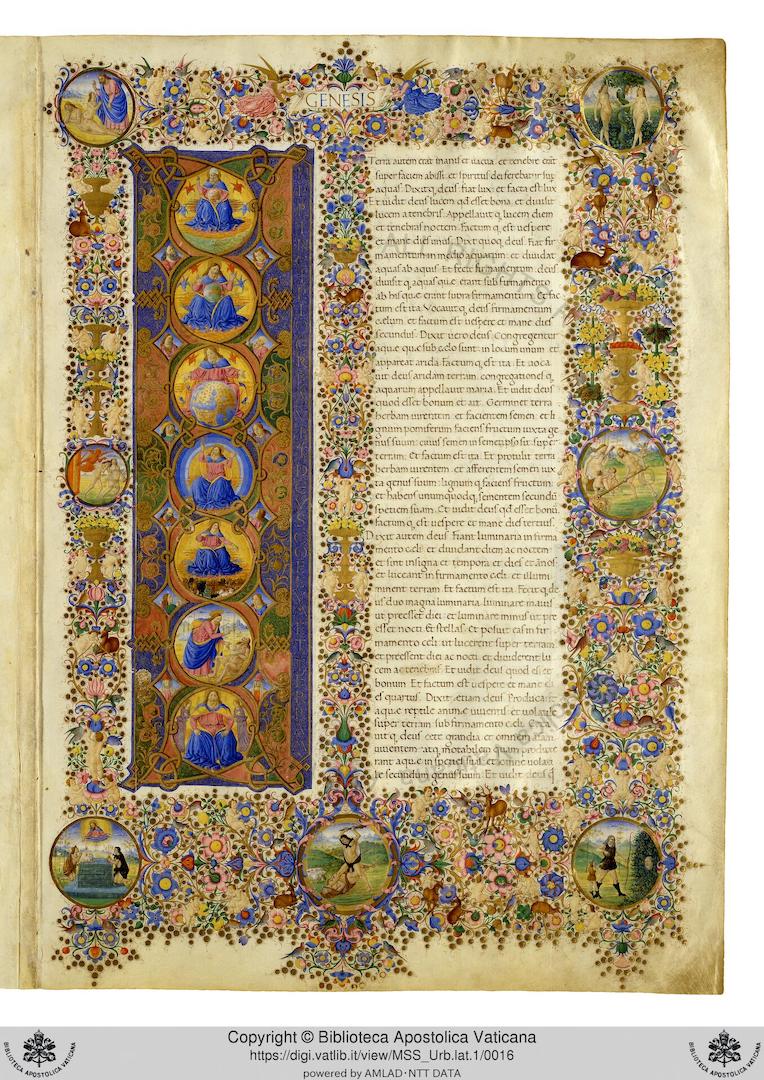 GENESIS
Terra autem erat inanis et uacua. et tenebre erāt
super faciem abissi. et spiritus dei ferebatur sup
aquas. Dixitq, deus fiat lux. et facta est lux
Et uidit deus lucem qd esset bona. et diuisit
lucem a tenebris. Appellauitq, lucem diem
et tenebras noctem. Factum q, est uespere
et mane dies unus. Dixit quoq, deus. Fiat fir
mamentum in medio aquarum. et diuidat
aquas ab aquis. Et fecit firmamentum. deus
diuisit q, aquas que erant sub firmamento
ab his que erant supra firmamentum. Et fac
tum est ita. Vocauit q, deus firmamentum
celum. et factum est uespere et mane dies
secundus. Dixit uero deus. Congregentur
aque que sub celo sunt in locum unum. et
appareat arida. Factum q, est ita. Et uoca
uit deus aridam terram. congregationes q,
aquarum appellauit maria. Et uidit deus
quod esset bonum et ait. Germinet terra
herbam uirentem. et facientem semen. et li
gnum pomiferum faciens fructum iuxta ge
nus suum. cuius semen in semetipso sit super
terram. Et factum est ita. Et protulit terra
herbam uirentem. et afferentem semen iux
ta genus suum. lignum q, faciens fructum.
et habens unumquodq, sementem secundū
spetiem suam. Et uidit deus qd esset bonū.
factum q, est uespere et mane dies tertius.
Dixit autem deus. Fiant luminaria in firma
mento celi. et diuidant diem ac noctem.
et sint in signa et tempora et dies et ānos
et luceant in firmamento celi. et illumi
minent terram. Et factum est ita. Fecit q, de
us duo magna luminaria. luminare maius
ut preesset diei. et luminare minus ut pre
esset nocti. Et stellas. et posuit eas in fir
mamento celi. ut lucerent super terram
et preessent diei ac nocti. et diuiderent lu
cem ac tenebras. Et uidit deus quod esset
bonum. Et factum est uespere et mane di
es quartus. Dixit etiam deus. Producāt
aque reptile anime uiuentis et uolatile
super terram sub firmamento celi.
uit q, deus cete grandia. et omnem animam
uiuentem atq, motabilem quam produxe
rant aque in species suas. et omne uolati
le secundum genus suum. Et uidit deus q
Copyright © Biblioteca Apostolica Vaticana
https://digi.vatlib.it/view/MSS_Urb.lat.1/0016
powered by AMLAD·NTT DATA
BIBLIOTECA APOSTOLICA VATICANA
BIBLIOTECA APOSTOLICA VATICANA